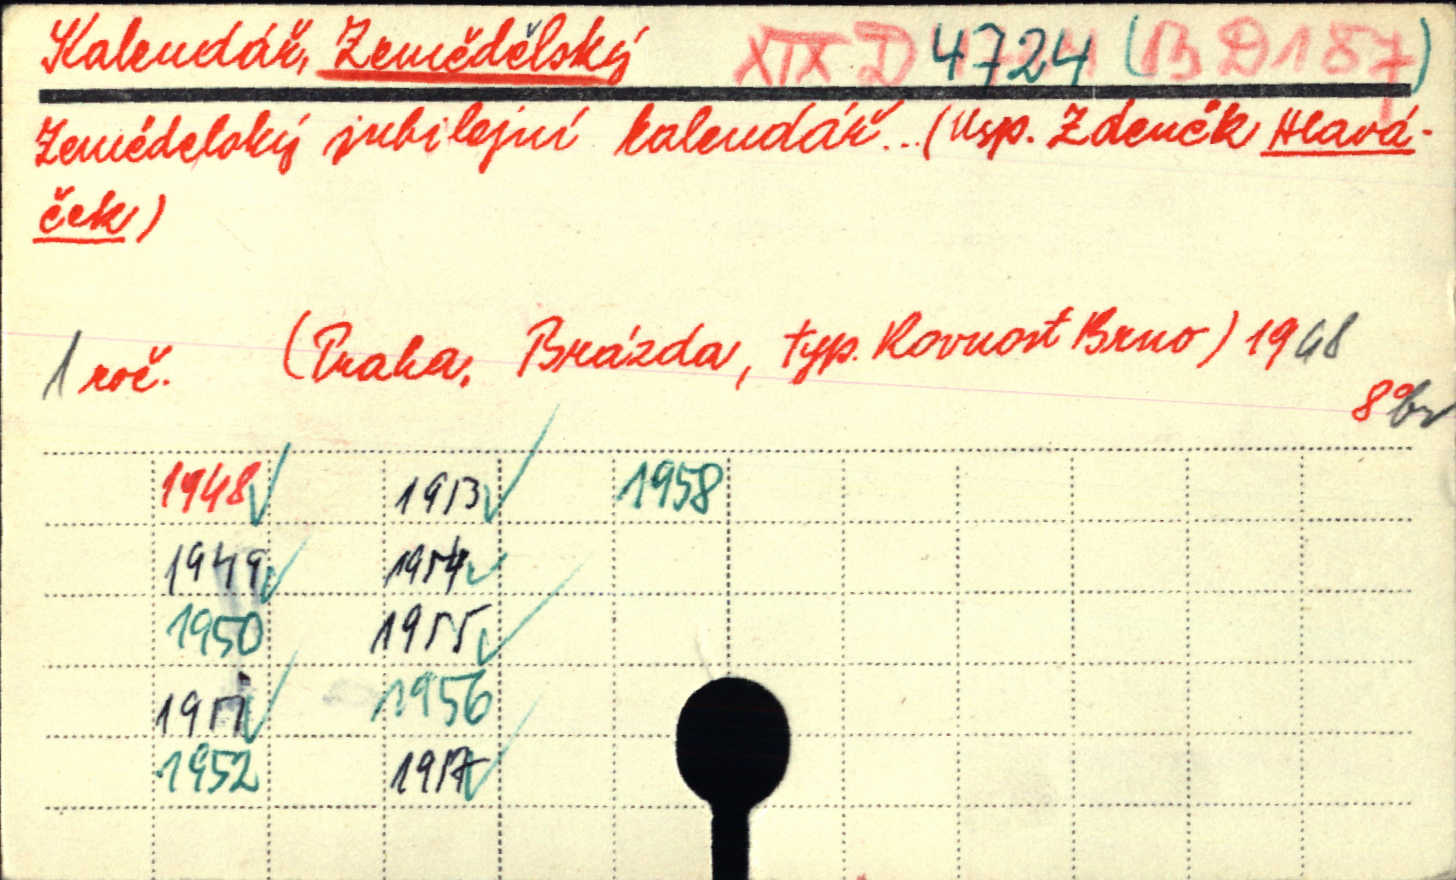 Kalendář, Zemědělský XIX D 4724 (B D 187)
Zemědelský jubilejní kalendář... (Usp. Zdeněk Hlavá-
ček)
1 roč. (Praha, Brázda, typ. Rovnost Brno) 1948
8° br
1948 1953 1958
1949 1954
1950 1955
1951 1956
1952 1957